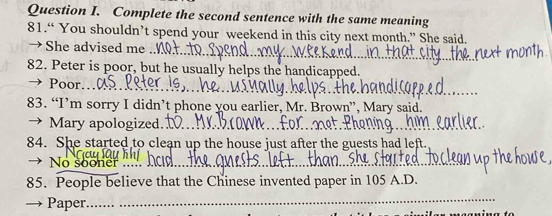 Question I. Complete the second sentence with the same meaning
81.“ You shouldn’t spend your weekend in this city next month.” She said.
→ She advised me ..not to spend my weekend in that city the next month
82. Peter is poor, but he usually helps the handicapped.
→ Poor...as Peter is, he usually helps the handicapped.......
83. “I’m sorry I didn’t phone you earlier, Mr. Brown”, Mary said.
→ Mary apologized.to Mr.Brown for not phoning him earlier..
84. She started to clean up the house just after the guests had left.
Ngay sau khi
→ No sooner ..... had the guests left than she started to clean up the house,
85. People believe that the Chinese invented paper in 105 A.D.
→ Paper......